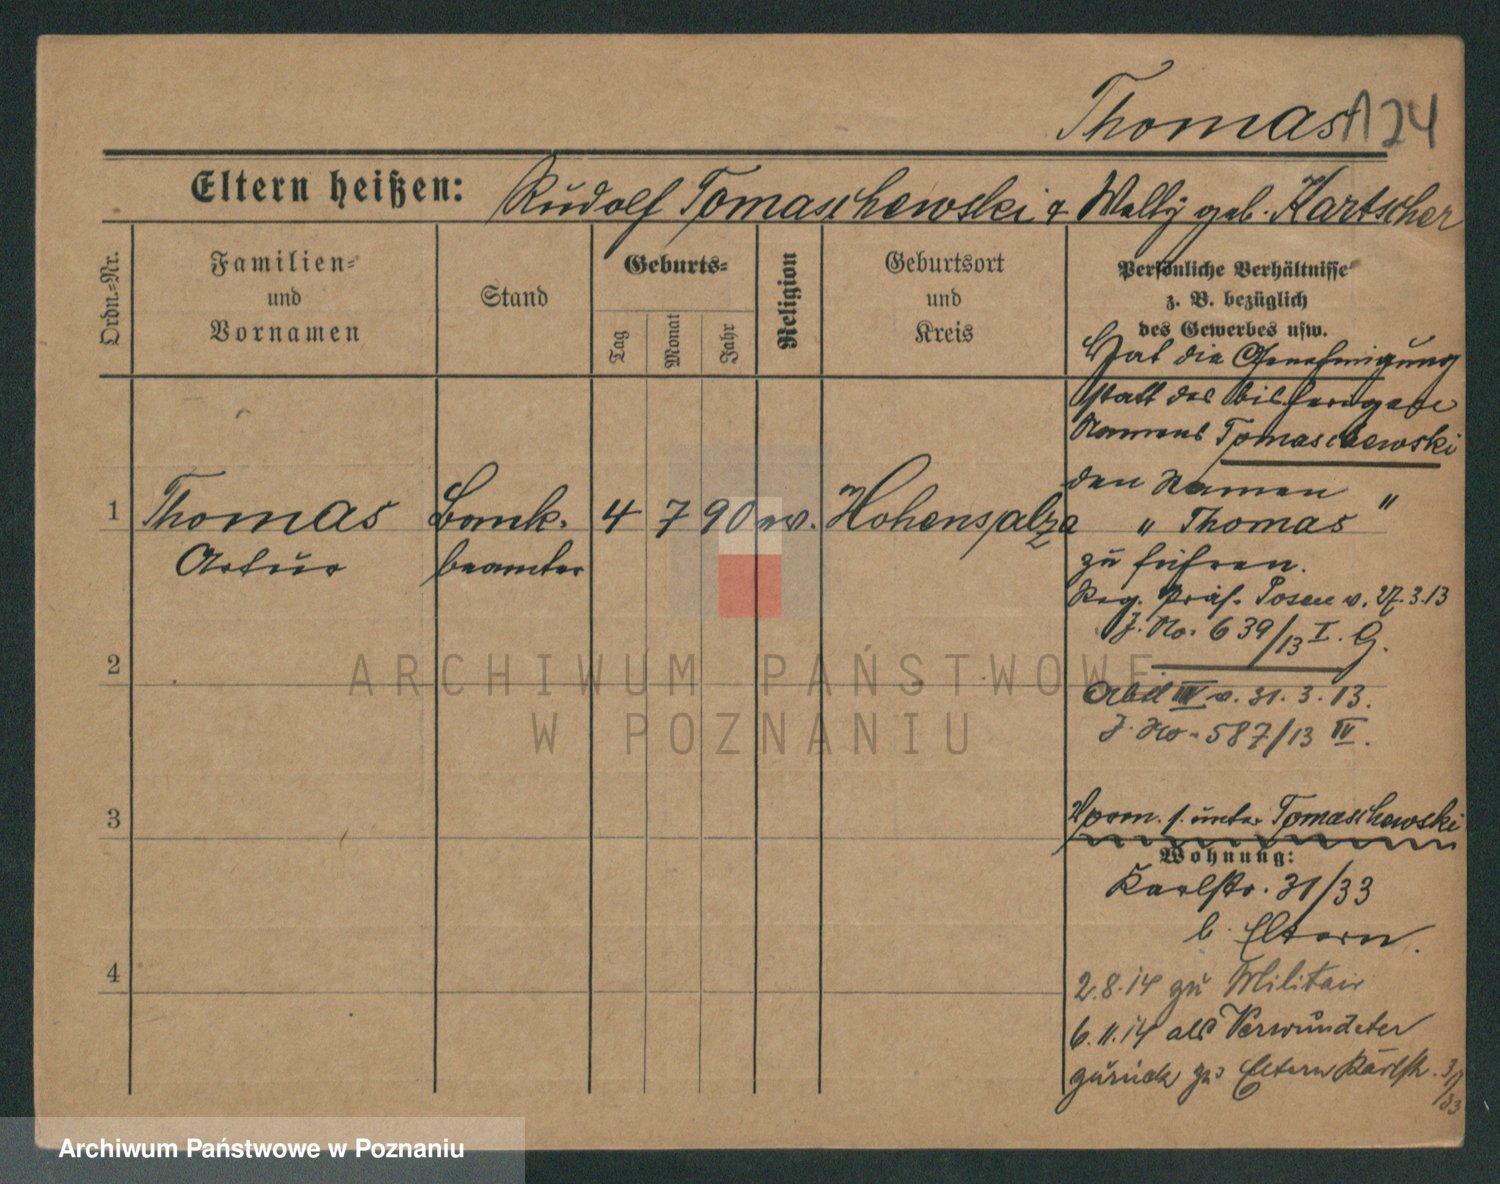 Thomas 124
Eltern heißen: Rudolf Tomaschewski & Wally geb. Hartscher
Ordn.-Nr.
Familien-
und
Vornamen
Stand
Geburts-
Tag
Monat
Jahr
Religion
Geburtsort
und
Kreis
Persönliche Verhältnisse
z. B. bezüglich
des Gewerbes usw.
Hat die Genehmigung
statt des bisherigen
Namens Tomaschewski
den Namen "
" Thomas
zu führen.
Reg. Präs. Posen v. 27.3.13
J. No. 639/13 I. G.
1 Thomas Bank- 4 7 90 ev. Hohensalza
Artur beamter
2
Abtl IV v. 31.3.13.
J. No. 587/13 IV.
3
Vorm. s. unter Tomaschewski
Wohnung:
Karlstr. 31/33
b. Eltern.
4
2.8.14 zu Militair
6.11.14 als Verwundeter
zurück zu Eltern Karlstr. 31/33
ARCHIWUM PAŃSTWOWE
W POZNANIU
Archiwum Państwowe w Poznaniu